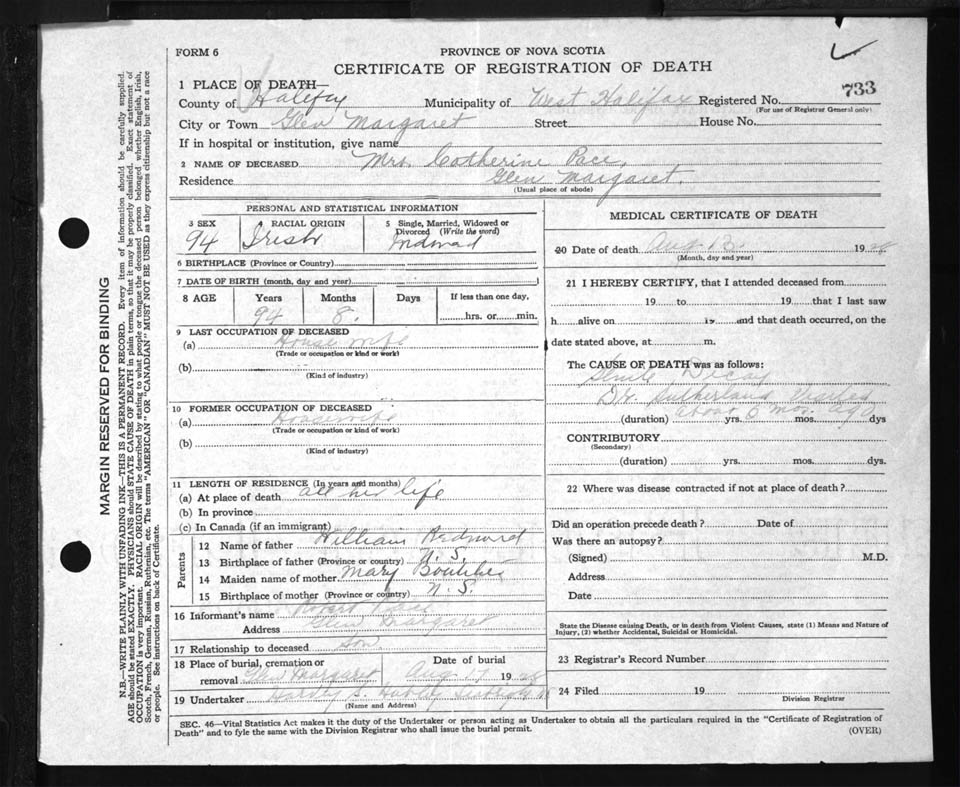 FORM 6
PROVINCE OF NOVA SCOTIA
CERTIFICATE OF REGISTRATION OF DEATH
1 PLACE OF DEATH
County of Halifax Municipality of West Halifax Registered No. 733
(For use of Registrar General only)
City or Town Glen Margaret Street House No.
If in hospital or institution, give name
2 NAME OF DECEASED Mrs. Catherine Pace,
Residence Glen Margaret.
(Usual place of abode)
PERSONAL AND STATISTICAL INFORMATION
3 SEX 4 RACIAL ORIGIN 5 Single, Married, Widowed or Divorced (Write the word)
94 Irish
6 BIRTHPLACE (Province or Country)
7 DATE OF BIRTH (month, day and year)
8 AGE Years Months Days If less than one day,
94 8. hrs. or min.
9 LAST OCCUPATION OF DECEASED
(a) House wife
(Trade or occupation or kind or work)
(b)
(Kind of industry)
10 FORMER OCCUPATION OF DECEASED
(a) Housewife
(Trade or occupation or kind of work)
(b)
(Kind of industry)
11 LENGTH OF RESIDENCE (In years and months)
(a) At place of death all her life
(b) In province
(c) In Canada (if an immigrant)
Parents
12 Name of father William Redmond
13 Birthplace of father (Province or country) N. S.
14 Maiden name of mother Mary
15 Birthplace of mother (Province or country) N. S.
16 Informant's name Robert Pace
Address Glen Margaret
17 Relationship to deceased Son.
18 Place of burial, cremation or removal Glen Margaret Date of burial Aug 17 19
19 Undertaker
(Name and Address)
MEDICAL CERTIFICATE OF DEATH
20 Date of death Aug 19
(Month, day and year)
21 I HEREBY CERTIFY, that I attended deceased from
19 to 19 that I last saw
h alive on 19 and that death occurred, on the
date stated above, at m.
The CAUSE OF DEATH was as follows:
Senile Decay
Dr. Sutherland
about 6 mos. ago
(duration) yrs. mos. dys
CONTRIBUTORY
(Secondary)
(duration) yrs. mos. dys.
22 Where was disease contracted if not at place of death?
Did an operation precede death? Date of
Was there an autopsy?
(Signed) M.D.
Address
Date
State the Disease causing Death, or in death from Violent Causes, state (1) Means and Nature of
Injury, (2) whether Accidental, Suicidal or Homicidal.
23 Registrar's Record Number
24 Filed 19
Division Registrar
SEC. 46—Vital Statistics Act makes it the duty of the Undertaker or person acting as Undertaker to obtain all the particulars required in the "Certificate of Registration of
Death" and to fyle the same with the Division Registrar who shall issue the burial permit.
(OVER)
MARGIN RESERVED FOR BINDING
N.B.—WRITE PLAINLY WITH UNFADING INK—THIS IS A PERMANENT RECORD. Every item of information should be carefully supplied.
AGE should be stated EXACTLY. PHYSICIANS should STATE CAUSE OF DEATH in plain terms, so that it may be properly classified. Exact statement of
OCCUPATION is very important. RACIAL ORIGIN will be described by stating to what people or tongue the deceased person belonged whether English, Irish,
Scotch, French, German, Russian, Ruthenian, etc. The terms "AMERICAN" OR "CANADIAN" MUST NOT BE USED as they express citizenship but not a race
or people. See instructions on back of Certificate.